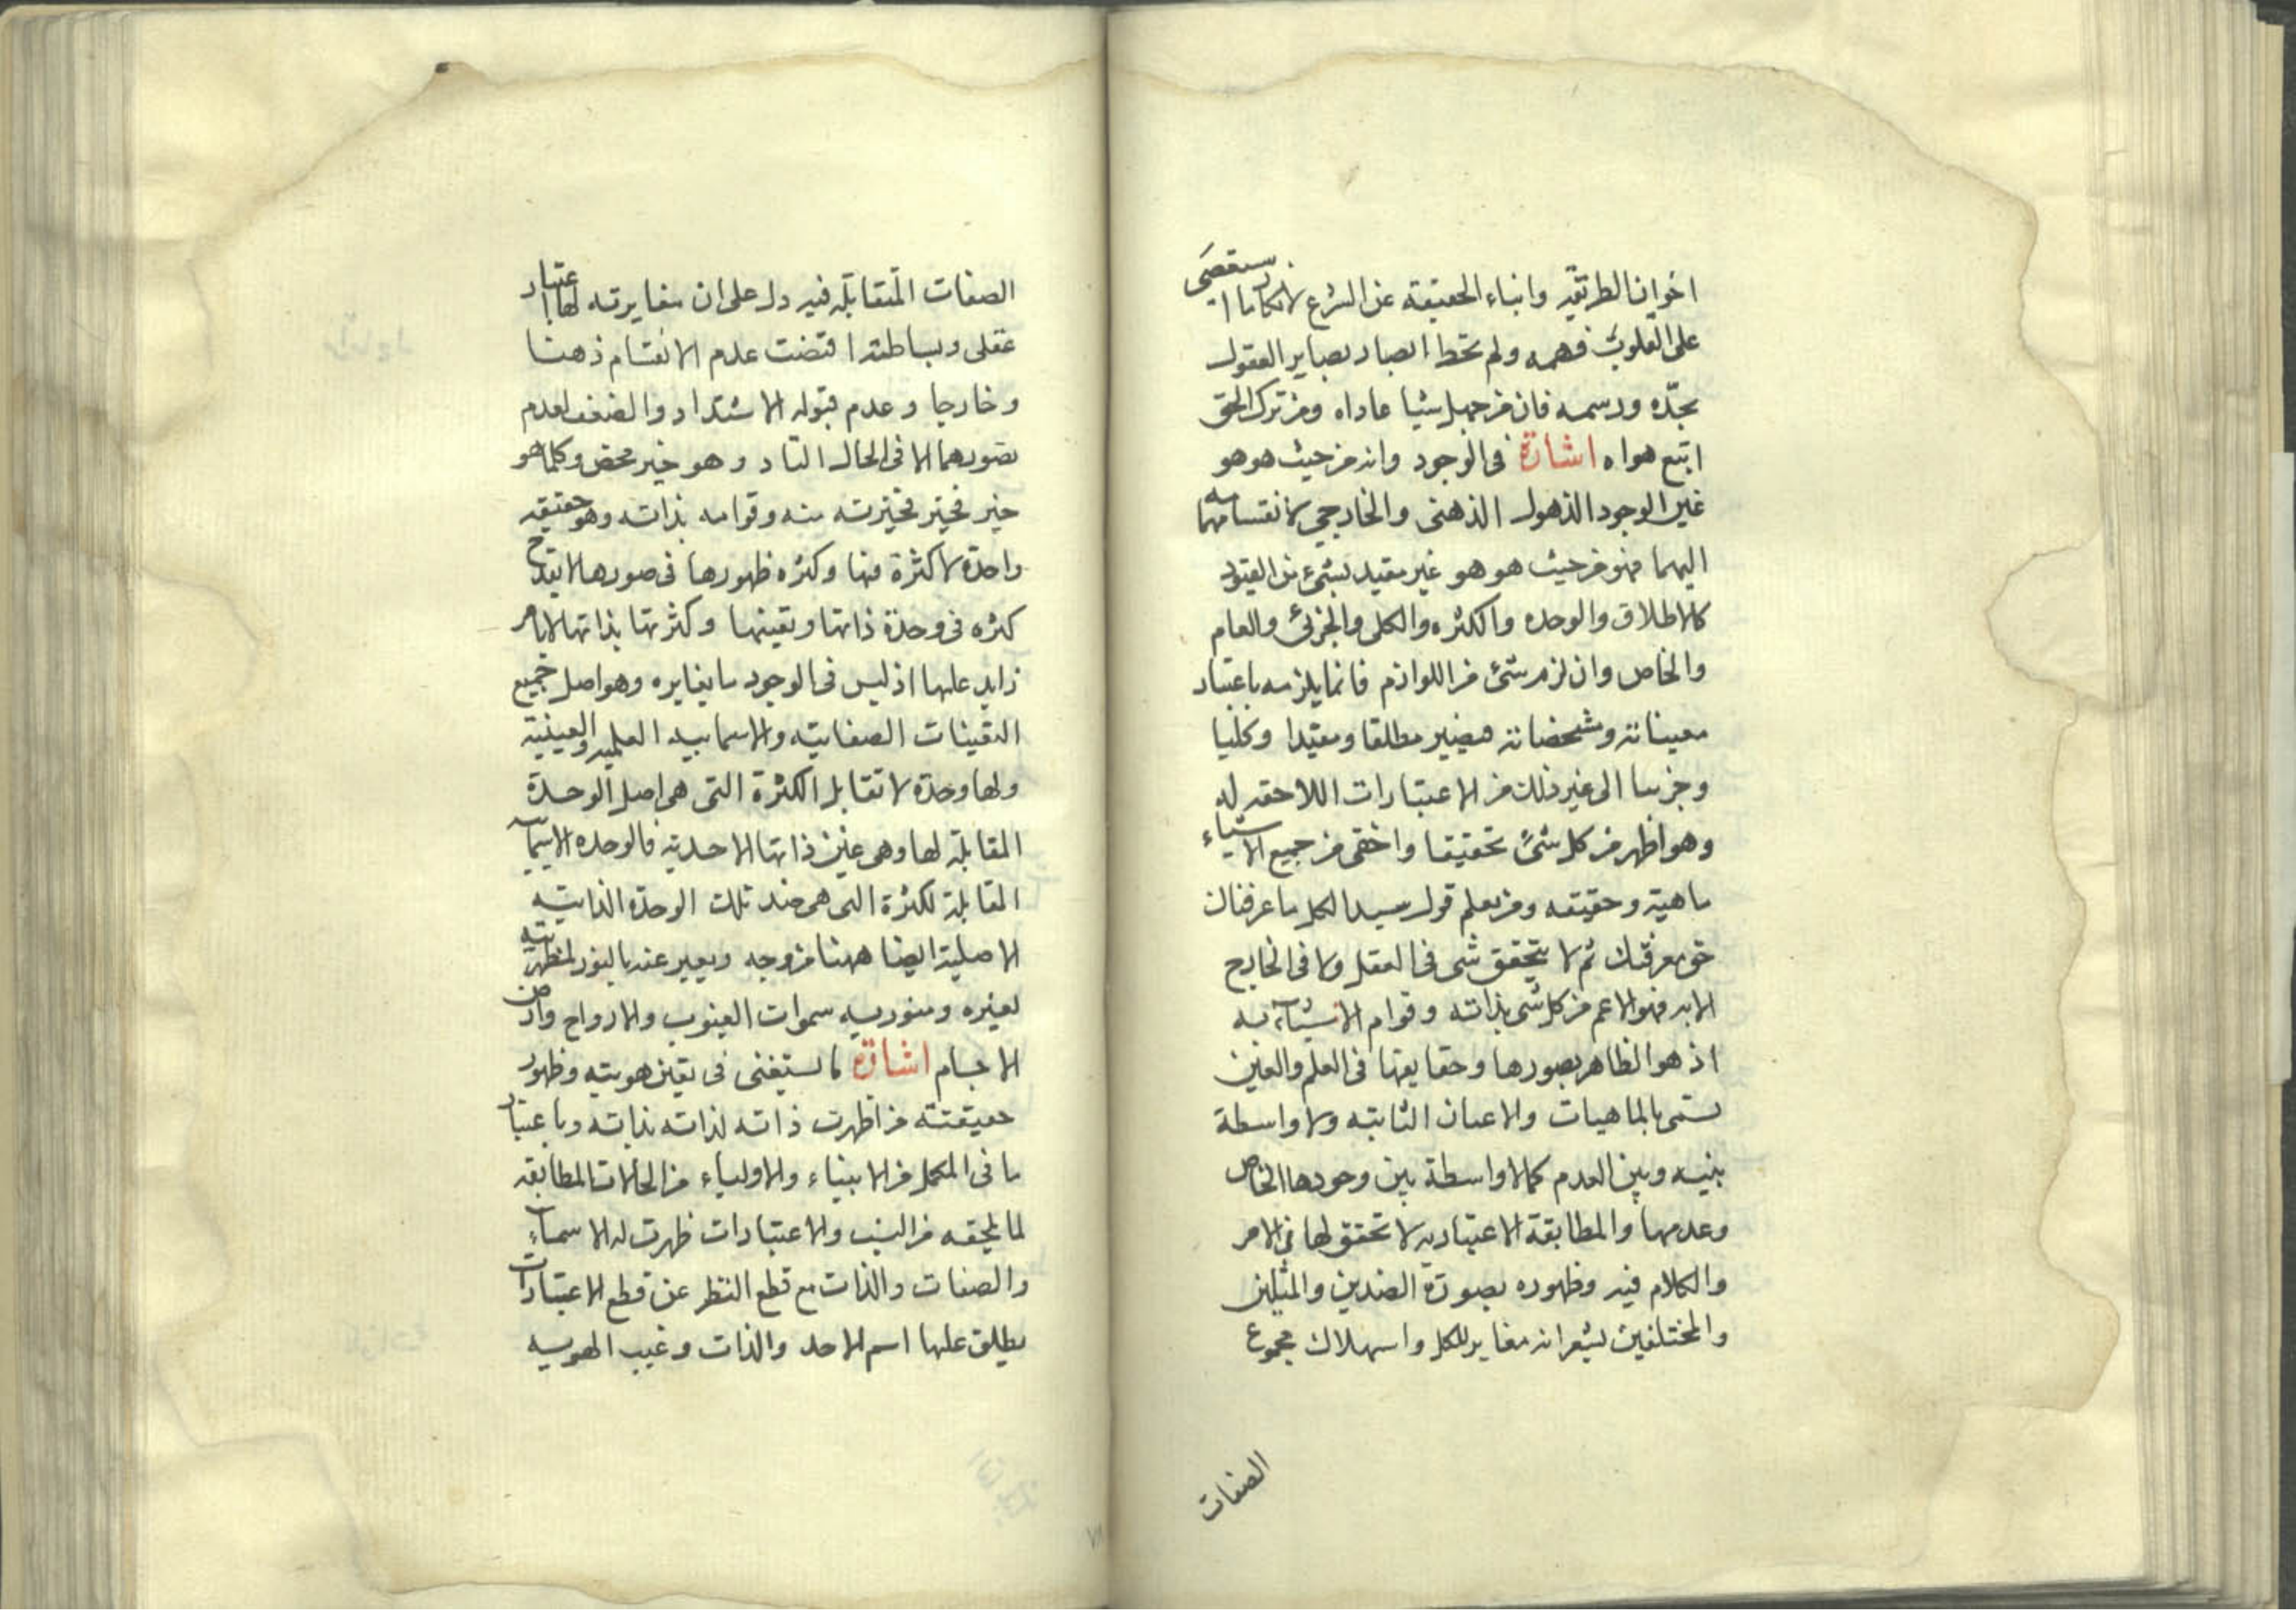 اخوان الطريقة وابناء الحقيقة عن الشرع لانكار ما استقصى
على القلوب فهمه ولم تحط ابصار بصاير العقول
بحده ورسمه فان من جهل شيا عاداه ومن ترك الحق
اتبع هواه اشارة فى الوجود وانه من حيث هو هو
غير الوجود الذهنى والخارجي لانقسامه
اليهما فهو من حيث هو هو غير مقيد بشئ من القيود
كالاطلاق والوحده والكثره والكلى والجزئ والعام
والخاص وان لزمه شئ من اللوازم فانما يلزمه باعتبار
معيناته ومشخصاته فيصير مطلقا ومقيدا وكليا
وجزييا الى غير ذلك من الاعتبارات اللاحقه له
وهو اظهر من كل شئ تحقيقا واخفى من جميع الاشياء
ماهية وحقيقه ومن يعلم قول سيد الكل ما عرفناك
حق معرفتك ثم لا يتحقق شى فى العقل ولا فى الخارج
الا به فهو الاعم من كل شى بذاته وقوام الاشياء به
اذ هو الظاهر بصورها وحقايقها فى العلم والعين
تسمى بالماهيات والاعيان الثابته ولا واسطة
بينه وبين العدم كما لا واسطة بين وجودها الخاص
وعدمها والمطابقة الاعتباريه لا تحقق لها فى الامر
والكلام فيه وظهوره بصورة الضدين والمثلين
والمختلفين يشعر انه مغاير للكل واستهلاك مجموع
الصفات
الصفات المتقابلة فيه دل على ان مغايرته لها اعتبار
عقلى وبساطته اقتضت عدم الانقسام ذهنا
وخارجا وعدم قبوله الاشتداد والضعف لعدم
تصورهما الا فى الحال القار وهو خير محض وكلما هو
خير فخير فخيريته منه وقوامه بذاته وهو حقيقه
واحدة لا كثرة فيها وكثره ظهورها فى صورها لا يقدح
كثره فى وحدة ذاتها وتعينها وكثرتها بذاتها لا بامر
زايد عليها اذ ليس فى الوجود ما يغايره وهو اصل جميع
التعينات الصفاتية والاسماييه العلميه والعينية
ولها وحدة لا تقابل الكثرة التى هى اصل الوحدة
المقابلة لها وهى عين ذاتها الاحدية فالوحده الاسمايية
المقابلة لكثرة التى هى ضد تلك الوحدة الذاتية
الاصلية ايضا ههنا من وجه ويعبر عنه بالنور لمظهريته
لغيره ومنوريه سموات الغيوب والارواح وارض
الاجسام اشارة لما يستغنى فى تعين هويته وظهور
حقيقته من اظهرت ذاته لذاته بذاته وباعتبار
ما فى المكمل من الانبياء والاولياء من الحالات المطابقه
لما يلحقه من النسب والاعتبارات ظهرت له الاسماء
والصفات والذات مع قطع النظر عن قطع الاعتبارات
يطلق عليها اسم الاحد والذات وغيب الهويه